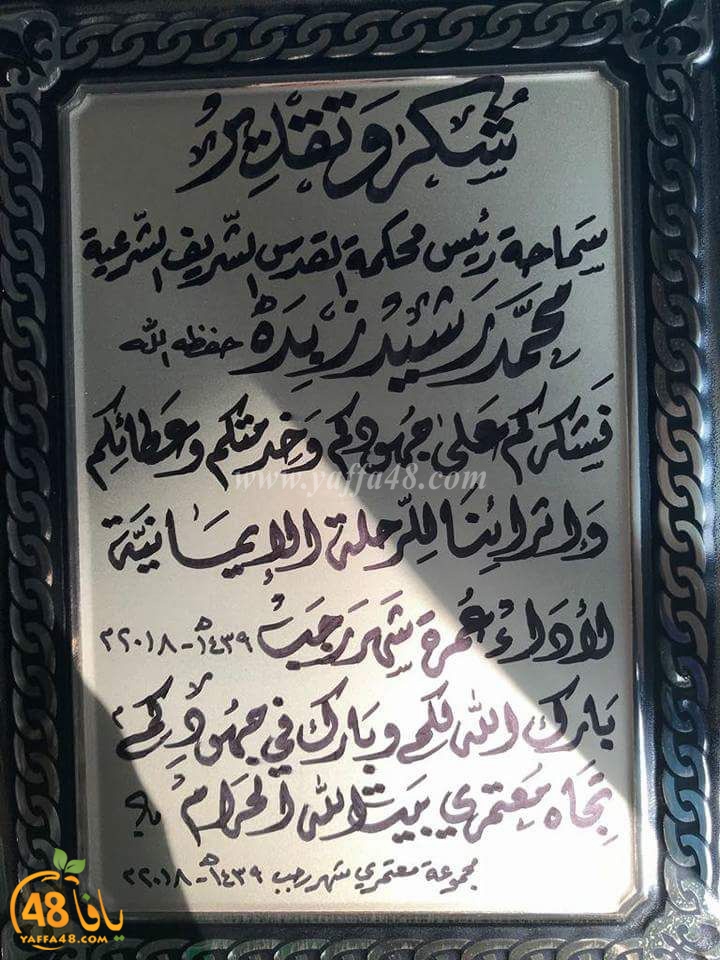 شُكر وَتقدِير
سَماحة رئيس محكمة القدس الشّريف الشّرعية
محمّد رَشيد زبدَة حفظه الله
نَشكركم عَلىٰ جهُودكم وَخدمتكم وعَطائِكم
www.yaffa48.com
وَإثرائِنا لِلرّحلة الإيمَانيَّة
لأدَاءُ عُمرة شهر رَجبُ ١٤٣٩هـ - ٢٠١٨م
بَارك الله لكم وبَارك في جهُودِكم
تجَاه مُعتمري بَيت الله الحرَام
مجموعة معتمري شهر رجب ١٤٣٩هـ - ٢٠١٨م
يافا 48
YAFFA48.COM